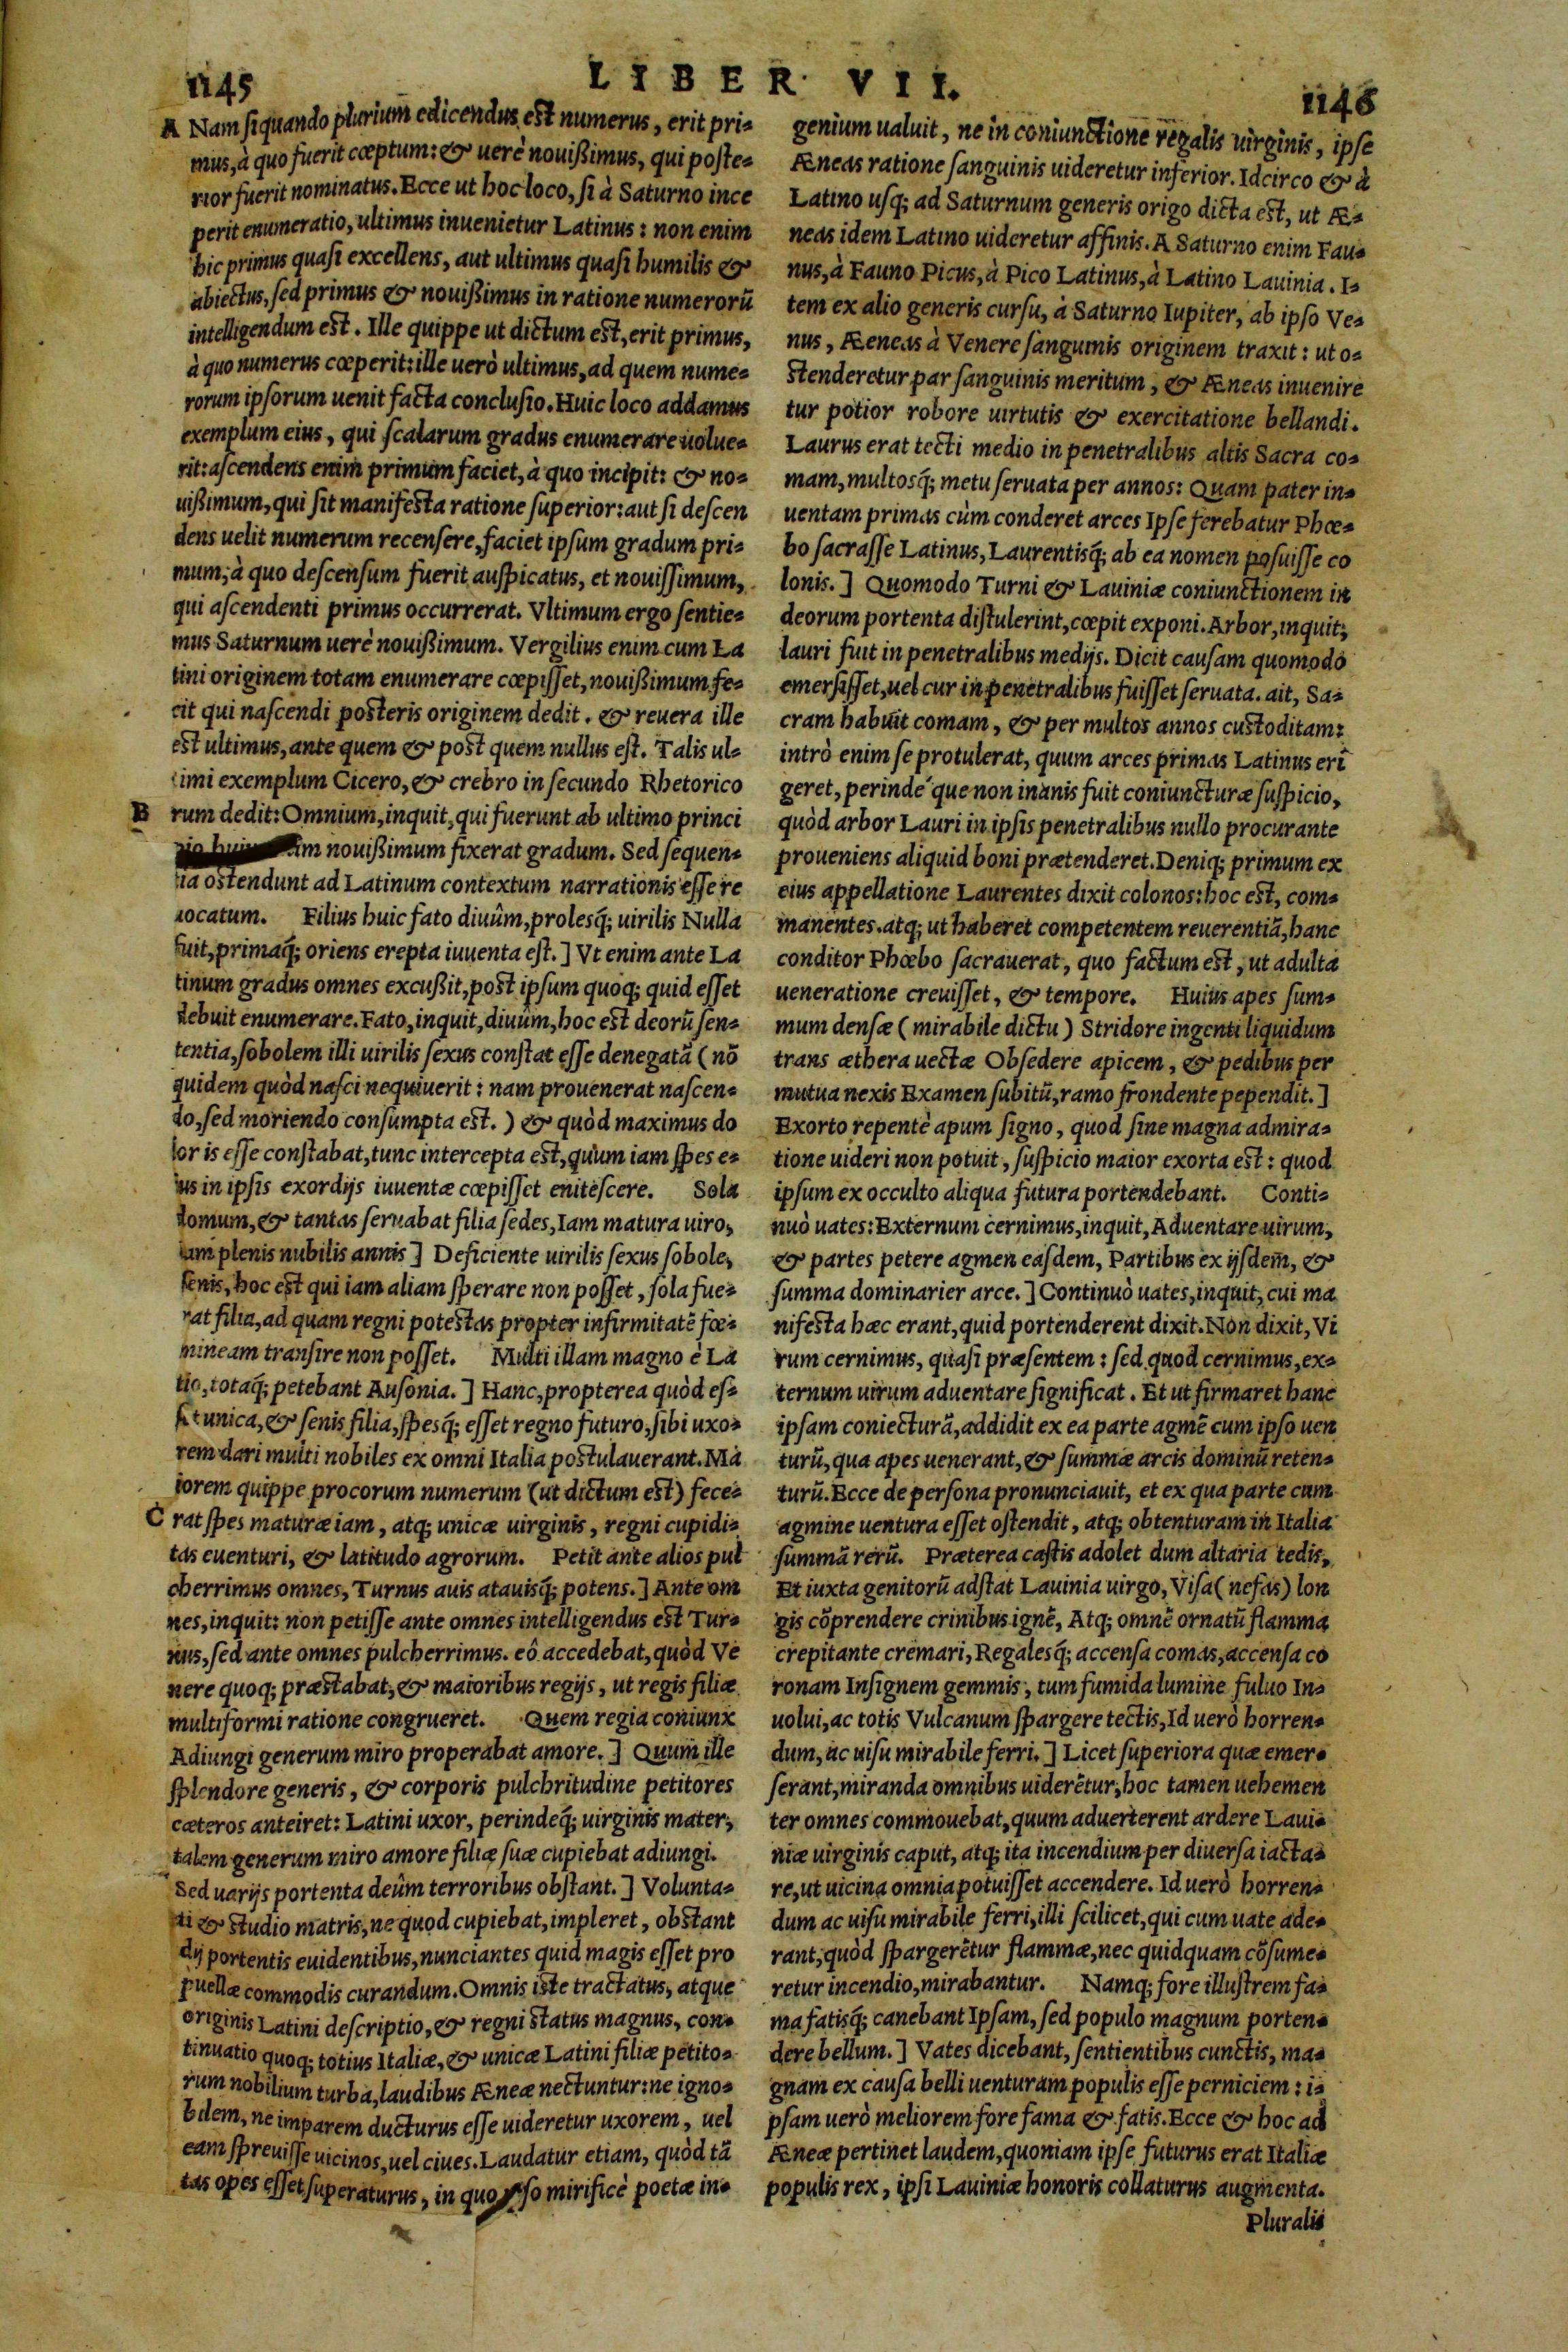 1145
LIBER VII.
1146
A Nam ſi quando pluriũm edicendus est numerus, erit pri=
mus, à quo fuerit cœptum: & uerè nouißimus, qui poſte=
rior fuerit nominatus. Ecce ut hoc loco, ſi à Saturno ince
perit enumeratio, ultimus inuenietur Latinus: non enim
hic primus quaſi excellens, aut ultimus quaſi humilis &
abiectus, ſed primus & nouißimus in ratione numerorũ
intelligendum est. Ille quippe ut dictum est, erit primus,
à quo numerus cœperit: ille uerò ultimus, ad quem nume=
rorum ipſorum uenit facta concluſio. Huic loco addamus
exemplum eius, qui ſcalarum gradus enumerare uolue=
rit: aſcendens enim primum faciet, à quo incipit: & no=
uißimum, qui ſit manifesta ratione ſuperior: aut ſi deſcen
dens uelit numerum recenſere, faciet ipſum gradum pri=
mum, à quo deſcenſum fuerit auſpicatus, et nouiſſimum,
qui aſcendenti primus occurrerat. Vltimum ergo ſentie=
mus Saturnum uerè nouißimum. Vergilius enim cum La
tini originem totam enumerare cœpiſſet, nouißimum fe=
cit qui naſcendi posteris originem dedit. & reuera ille
est ultimus, ante quem & post quem nullus eſt. Talis ul=
timi exemplum Cicero, & crebro in ſecundo Rhetorico
B rum dedit: Omnium, inquit, qui fuerunt ab ultimo princi
pio nouißimum fixerat gradum. Sed ſequen=
tia ostendunt ad Latinum contextum narrationis eſſe re
uocatum. Filius huic fato diuûm, proleſq́; uirilis Nulla
fuit, primaq́; oriens erepta iuuenta eſt.] Vt enim ante La
tinum gradus omnes excußit, post ipſum quoq; quid eſſet
debuit enumerare. Fato, inquit, diuûm, hoc est deorũ ſen=
tentia, ſobolem illi uirilis ſexus conſtat eſſe denegatã (nõ
quidem quòd naſci nequiuerit: nam prouenerat naſcen=
do, ſed moriendo conſumpta est.) & quòd maximus do
lor is eſſe conſtabat, tunc intercepta est, quùm iam ſpes e=
ius in ipſis exordijs iuuentæ cœpiſſet eniteſcere. Sola
domum, & tantas ſeruabat filia ſedes, Iam matura uiro,
iam plenis nubilis annis] Deficiente uirilis ſexus ſobole,
ſenis, hoc est qui iam aliam ſperare non poſſet, ſola fue=
rat filia, ad quam regni potestas propter infirmitatẽ fœ=
mineam tranſire non poſſet. Multi illam magno è La
tio, totaq́; petebant Auſonia.] Hanc, propterea quòd eſ=
ſet unica, & ſenis filia, ſpesq́; eſſet regno futuro, ſibi uxo=
rem dari multi nobiles ex omni Italia postulauerant. Ma
iorem quippe procorum numerum (ut dictum est) fece=
C rat ſpes maturæ iam, atq; unicæ uirginis, regni cupidi=
tas euenturi, & latitudo agrorum. Petit ante alios pul
cherrimus omnes, Turnus auis atauisq́; potens.] Ante om
nes, inquit: non petiſſe ante omnes intelligendus est Tur=
nus, ſed ante omnes pulcherrimus. eô accedebat, quòd Ve
nere quoq; præstabat, & maioribus regijs, ut regis filiæ
multiformi ratione congrueret. Quem regia coniunx
Adiungi generum miro properabat amore.] Quum ille
ſplendore generis, & corporis pulchritudine petitores
cæteros anteiret: Latini uxor, perindeq́; uirginis mater,
talem generum miro amore filiæ ſuæ cupiebat adiungi.
Sed uarijs portenta deûm terroribus obſtant.] Volunta=
ti & studio matris, ne quod cupiebat, impleret, obstant
dij portentis euidentibus, nunciantes quid magis eſſet pro
puellæ commodis curandum. Omnis iste tractatus, atque
originis Latini deſcriptio, & regni status magnus, con=
tinuatio quoq; totius Italiæ, & unicæ Latini filiæ petito=
rum nobilium turba, laudibus Æneæ nectuntur: ne igno=
bilem, ne imparem ducturus eſſe uideretur uxorem, uel
eam ſpreuiſſe uicinos, uel ciues. Laudatur etiam, quòd tã
tas opes eſſet ſuperaturus, in quo ipſo mirificè poetæ in=
genium ualuit, ne in coniunctione regalis uirginis, ipſe
Æneas ratione ſanguinis uideretur inferior. Idcirco & à
Latino uſq; ad Saturnum generis origo dicta eſt, ut Æ=
neas idem Latino uideretur affinis. A Saturno enim Fau=
nus, à Fauno Picus, à Pico Latinus, à Latino Lauinia. I=
tem ex alio generis curſu, à Saturno Iupiter, ab ipſo Ve=
nus, Æneas à Venere ſanguinis originem traxit: ut o=
stenderetur par ſanguinis meritum, & Æneas inuenire
tur potior robore uirtutis & exercitatione bellandi.
Laurus erat tecti medio in penetralibus altis Sacra co=
mam, multosq́; metu ſeruata per annos: Quam pater in=
uentam primas cùm conderet arces Ipſe ferebatur Phœ=
bo ſacraſſe Latinus, Laurentisq́; ab ea nomen poſuiſſe co
lonis.] Quomodo Turni & Lauiniæ coniunctionem in
deorum portenta diſtulerint, cœpit exponi. Arbor, inquit,
lauri fuit in penetralibus medijs. Dicit cauſam quomodo
emerſiſſet, uel cur in penetralibus fuiſſet ſeruata. ait, Sa=
cram habuit comam, & per multos annos custoditam:
intrò enim ſe protulerat, quum arces primas Latinus eri
geret, perinde´que non inanis fuit coniuncturæ ſuſpicio,
quòd arbor Lauri in ipſis penetralibus nullo procurante
proueniens aliquid boni prætenderet. Deniq; primum ex
eius appellatione Laurentes dixit colonos: hoc est, com=
manentes. atq; ut haberet competentem reuerentiã, hanc
conditor Phœbo ſacrauerat, quo factum est, ut adulta
ueneratione creuiſſet, & tempore. Huius apes ſum=
mum denſæ (mirabile dictu) Stridore ingenti liquidum
trans æthera uectæ Obſedere apicem, & pedibus per
mutua nexis Examen ſubitũ, ramo frondente pependit.]
Exorto repentè apum ſigno, quod ſine magna admira=
tione uideri non potuit, ſuſpicio maior exorta est: quod
ipſum ex occulto aliqua futura portendebant. Conti=
nuò uates: Externum cernimus, inquit, Aduentare uirum,
& partes petere agmen eaſdem, Partibus ex ijſdem̃, &
ſumma dominarier arce.] Continuò uates, inquit, cui ma
nifesta hæc erant, quid portenderent dixit. Non dixit, Vi
rum cernimus, quaſi præſentem: ſed quod cernimus, ex=
ternum uirum aduentare ſignificat. Et ut firmaret hanc
ipſam coniecturã, addidit ex ea parte agmẽ cum ipſo uen
turũ, qua apes uenerant, & ſummæ arcis dominũ reten=
turũ. Ecce de perſona pronunciauit, et ex qua parte cum
agmine uentura eſſet oſtendit, atq; obtenturam in Italia
ſummã rerũ. Præterea caſtis adolet dum altaria tedis,
Et iuxta genitorũ adſtat Lauinia uirgo, Viſa (nefas) lon
gis cõprendere crinibus ignẽ, Atq; omnẽ ornatũ flamma
crepitante cremari, Regalesq́; accenſa comas, accenſa co
ronam Inſignem gemmis, tum fumida lumine fuluo In=
uolui, ac totis Vulcanum ſpargere tectis, Id uerò horren=
dum, ac uiſu mirabile ferri.] Licet ſuperiora quæ emer=
ſerant, miranda omnibus uiderẽtur, hoc tamen uehemen
ter omnes commouebat, quum aduerterent ardere Laui=
niæ uirginis caput, atq; ita incendium per diuerſa iacta=
re, ut uicina omnia potuiſſet accendere. Id uerò horren=
dum ac uiſu mirabile ferri, illi ſcilicet, qui cum uate ade=
rant, quòd ſpargerẽtur flammæ, nec quidquam cõſume=
retur incendio, mirabantur. Namq; fore illuſtrem fa=
ma fatisq́; canebant Ipſam, ſed populo magnum porten=
dere bellum.] Vates dicebant, ſentientibus cunctis, ma=
gnam ex cauſa belli uenturam populis eſſe perniciem: i=
pſam uerò meliorem fore fama & fatis. Ecce & hoc ad
Æneæ pertinet laudem, quoniam ipſe futurus erat Italiæ
populis rex, ipſi Lauiniæ honoris collaturus augmenta.
Pluralis